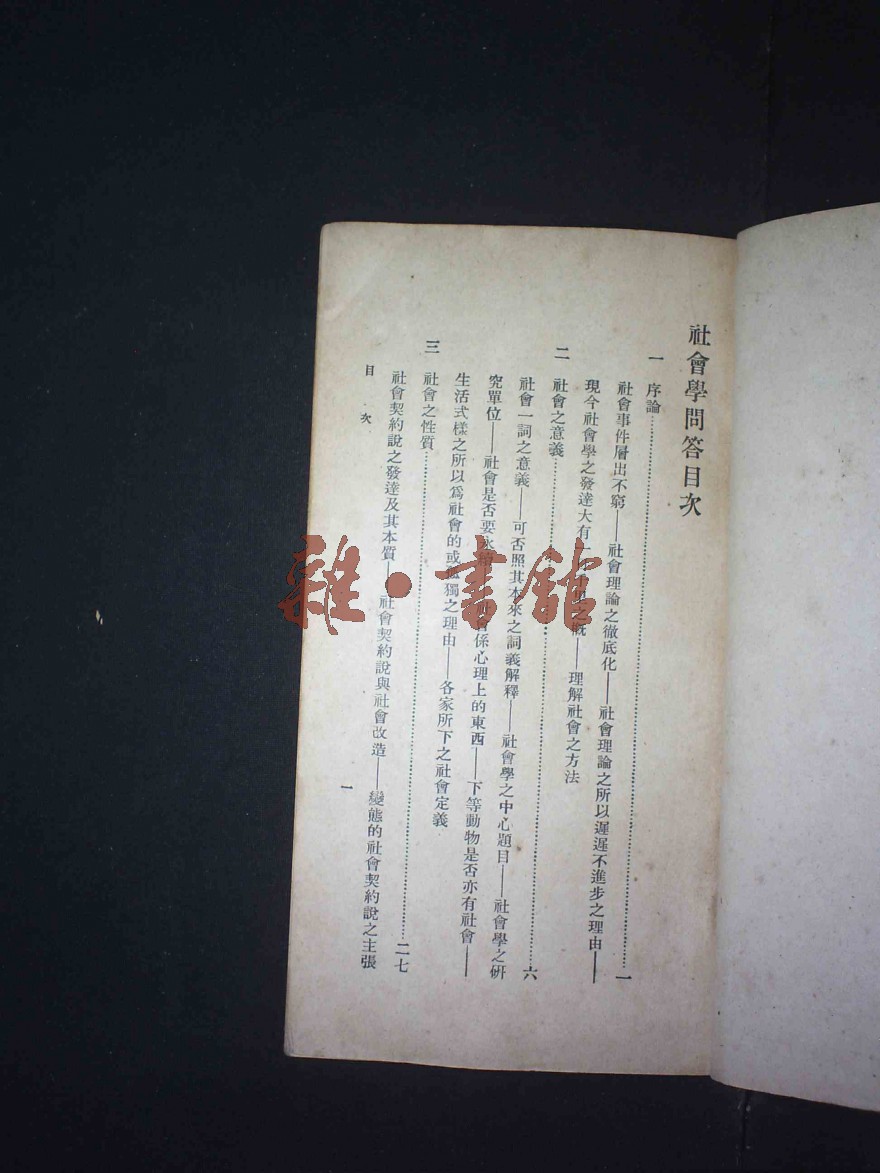 社會學問答目次
一　序論……一
社會事件層出不窮——社會理論之徹底化——社會理論之所以遲遲不進步之理由——
現今社會學之發達大有一之概——理解社會之方法
二　社會之意義……六
社會一詞之意義——可否照其本來之詞義解釋——社會學之中心題目——社會學之研
究單位——社會是否要永會係心理上的東西——下等動物是否亦有社會——
生活式樣之所以爲社會的或孤獨之理由——各家所下之社會定義
三　社會之性質……二七
社會契約說之發達及其本質——社會契約說與社會改造——變態的社會契約說之主張
目次　一
雜·書館